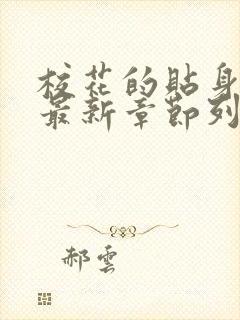 校花的貼身
最新章節列
郝雲